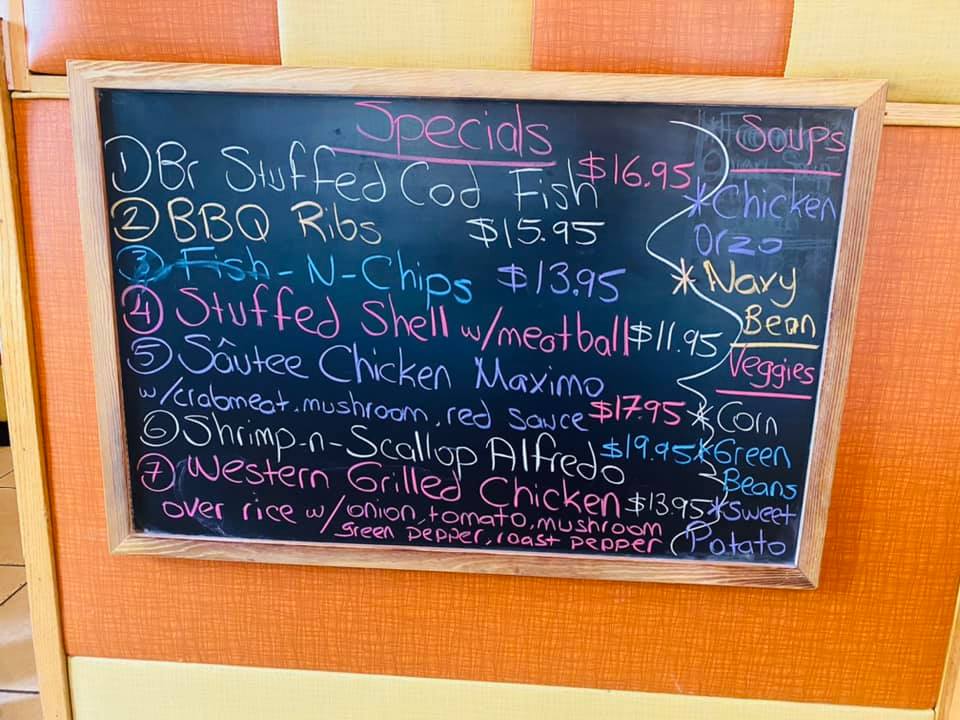 Specials
① Br Stuffed Cod Fish $16.95
② BBQ Ribs $15.95
③ Fish-N-Chips $13.95
④ Stuffed Shell w/meatball $11.95
⑤ Sâutee Chicken Maximo
w/crabmeat, mushroom, red sauce $17.95
⑥ Shrimp-n-Scallop Alfredo $19.95
⑦ Western Grilled Chicken $13.95
over rice w/onion, tomato, mushroom
green pepper, roast pepper
Soups
* Chicken
Orzo
* Navy
Bean
Veggies
* Corn
* Green
Beans
* Sweet
Potato